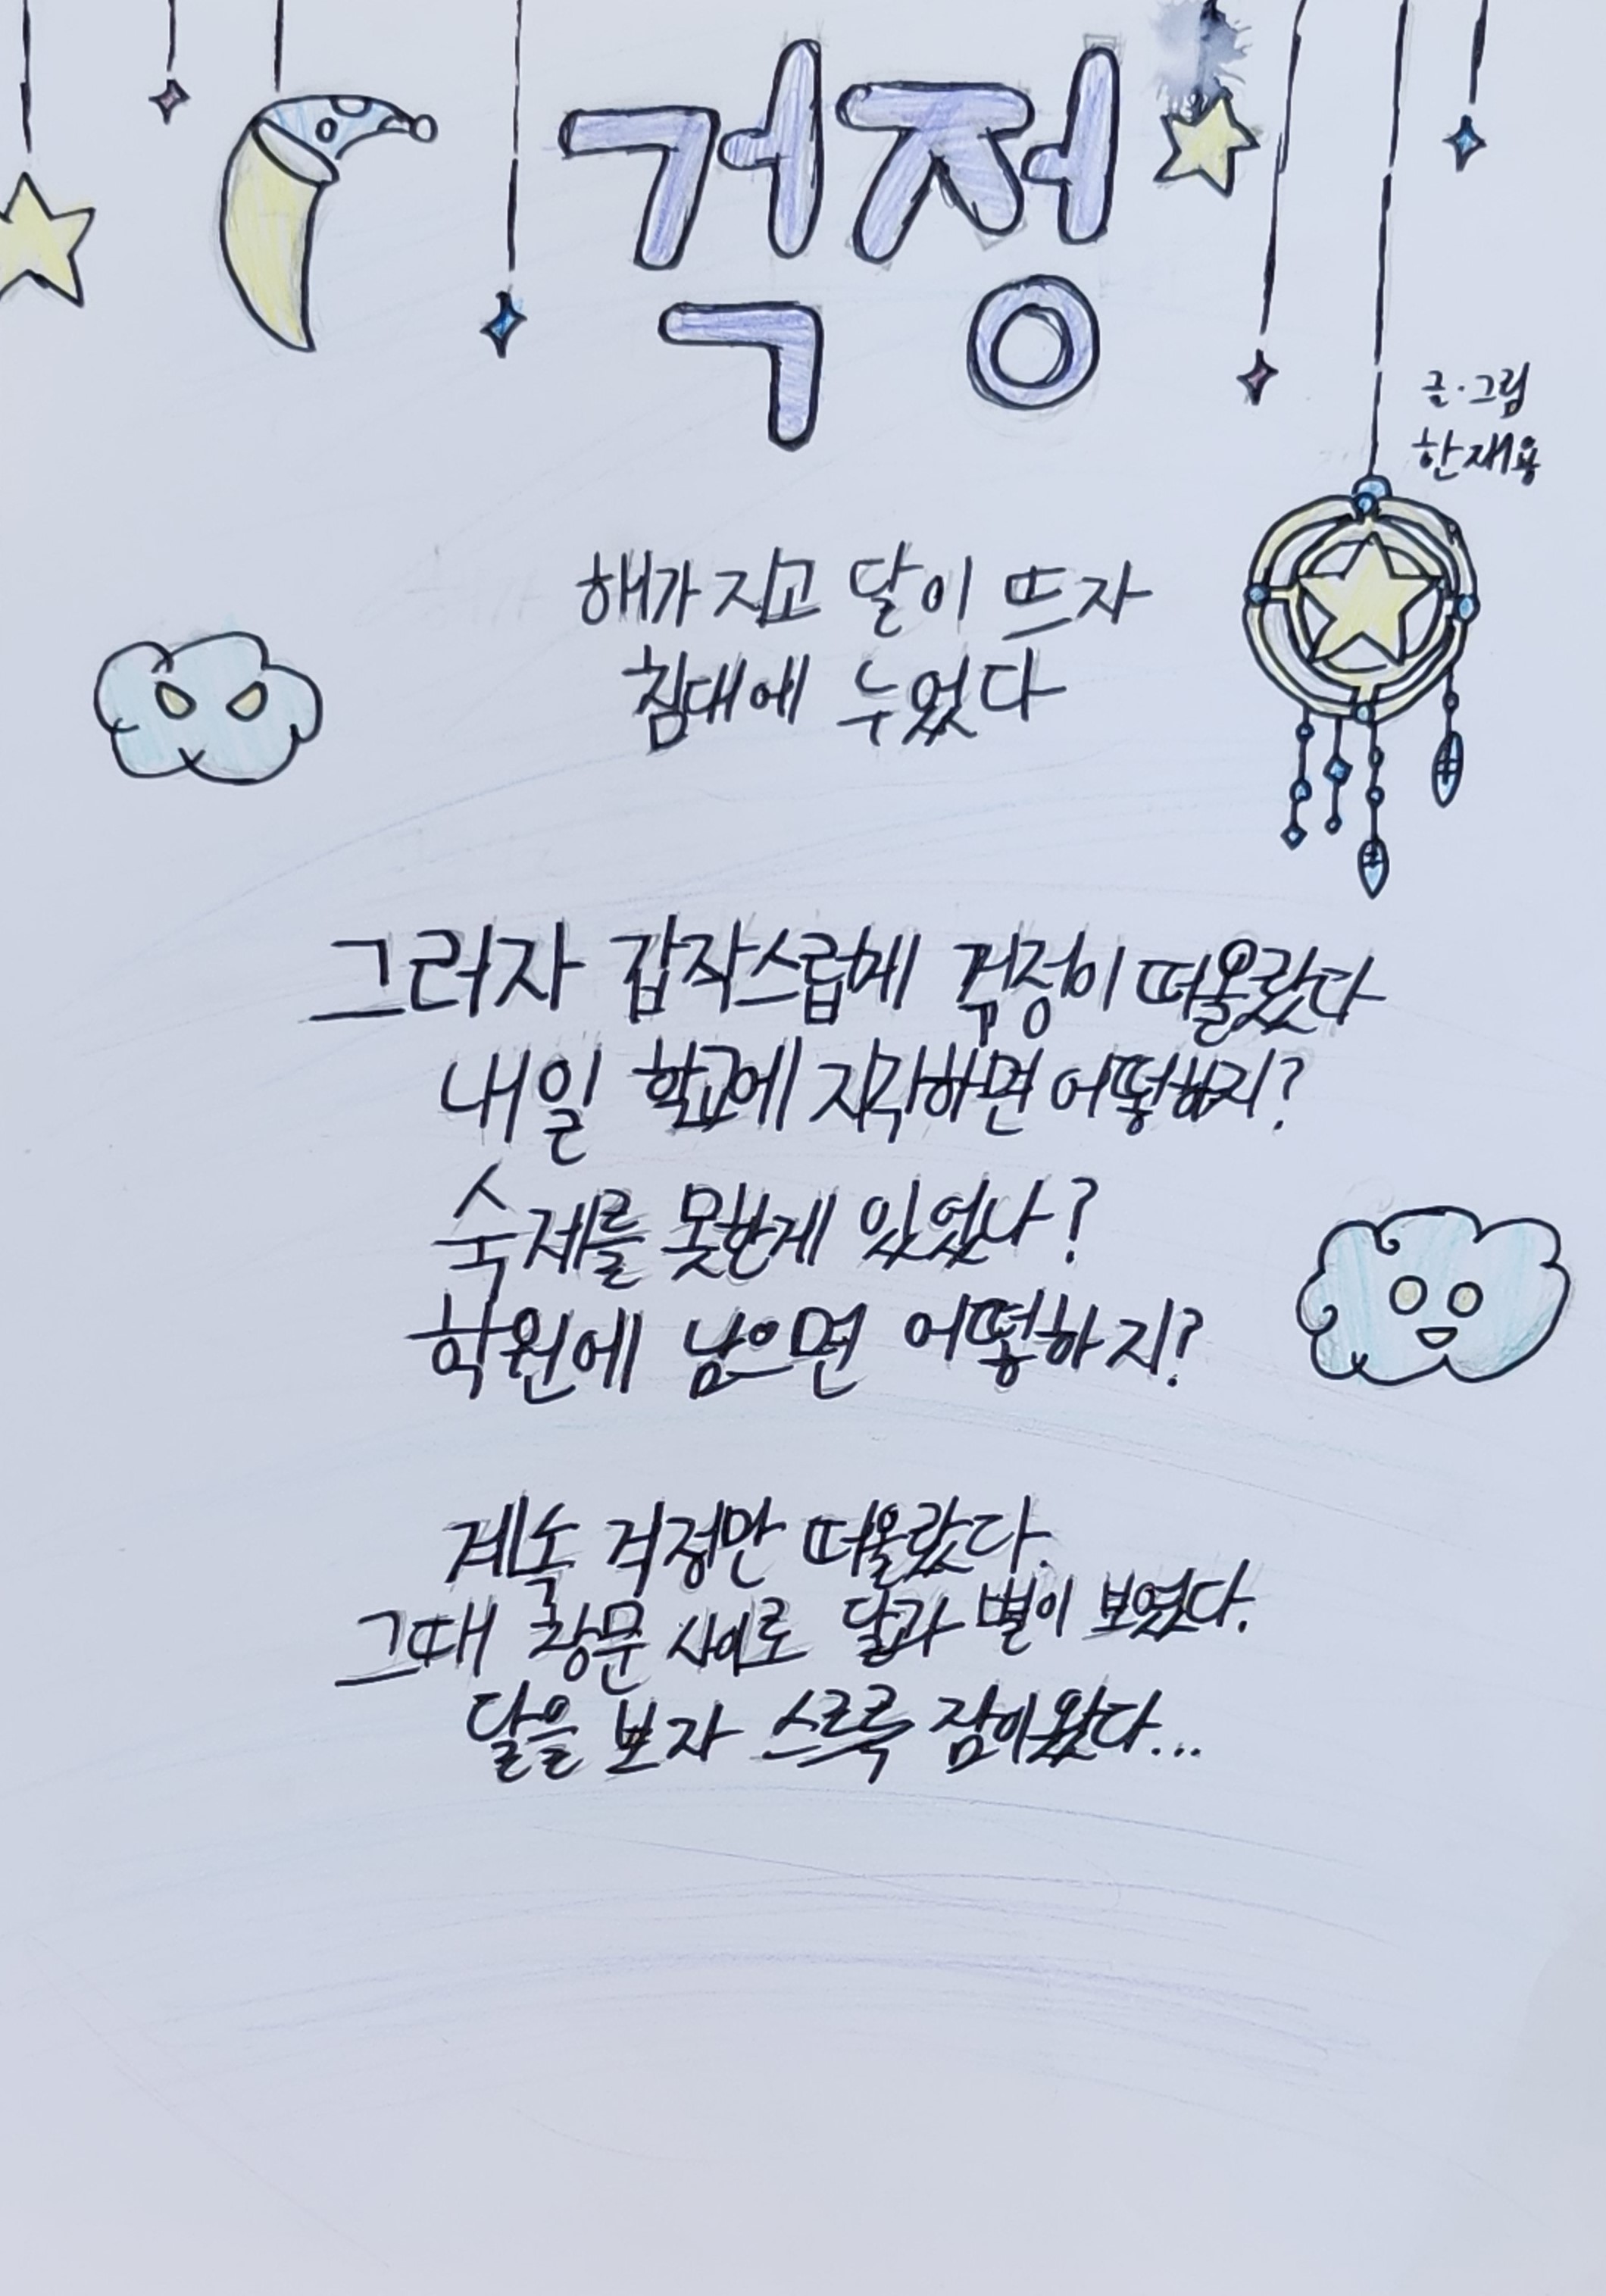 걱정
글·그림
한재용
해가 지고 달이 뜨자
침대에 누웠다
그러자 갑작스럽게 걱정이 떠올랐다
내일 학교에 지각하면 어떻하지?
숙제를 못한게 있었나?
학원에 남으면 어떻하지?
계속 걱정만 떠올랐다.
그때 창문 사이로 달과 별이 보였다.
달을 보자 스르륵 잠이왔다...